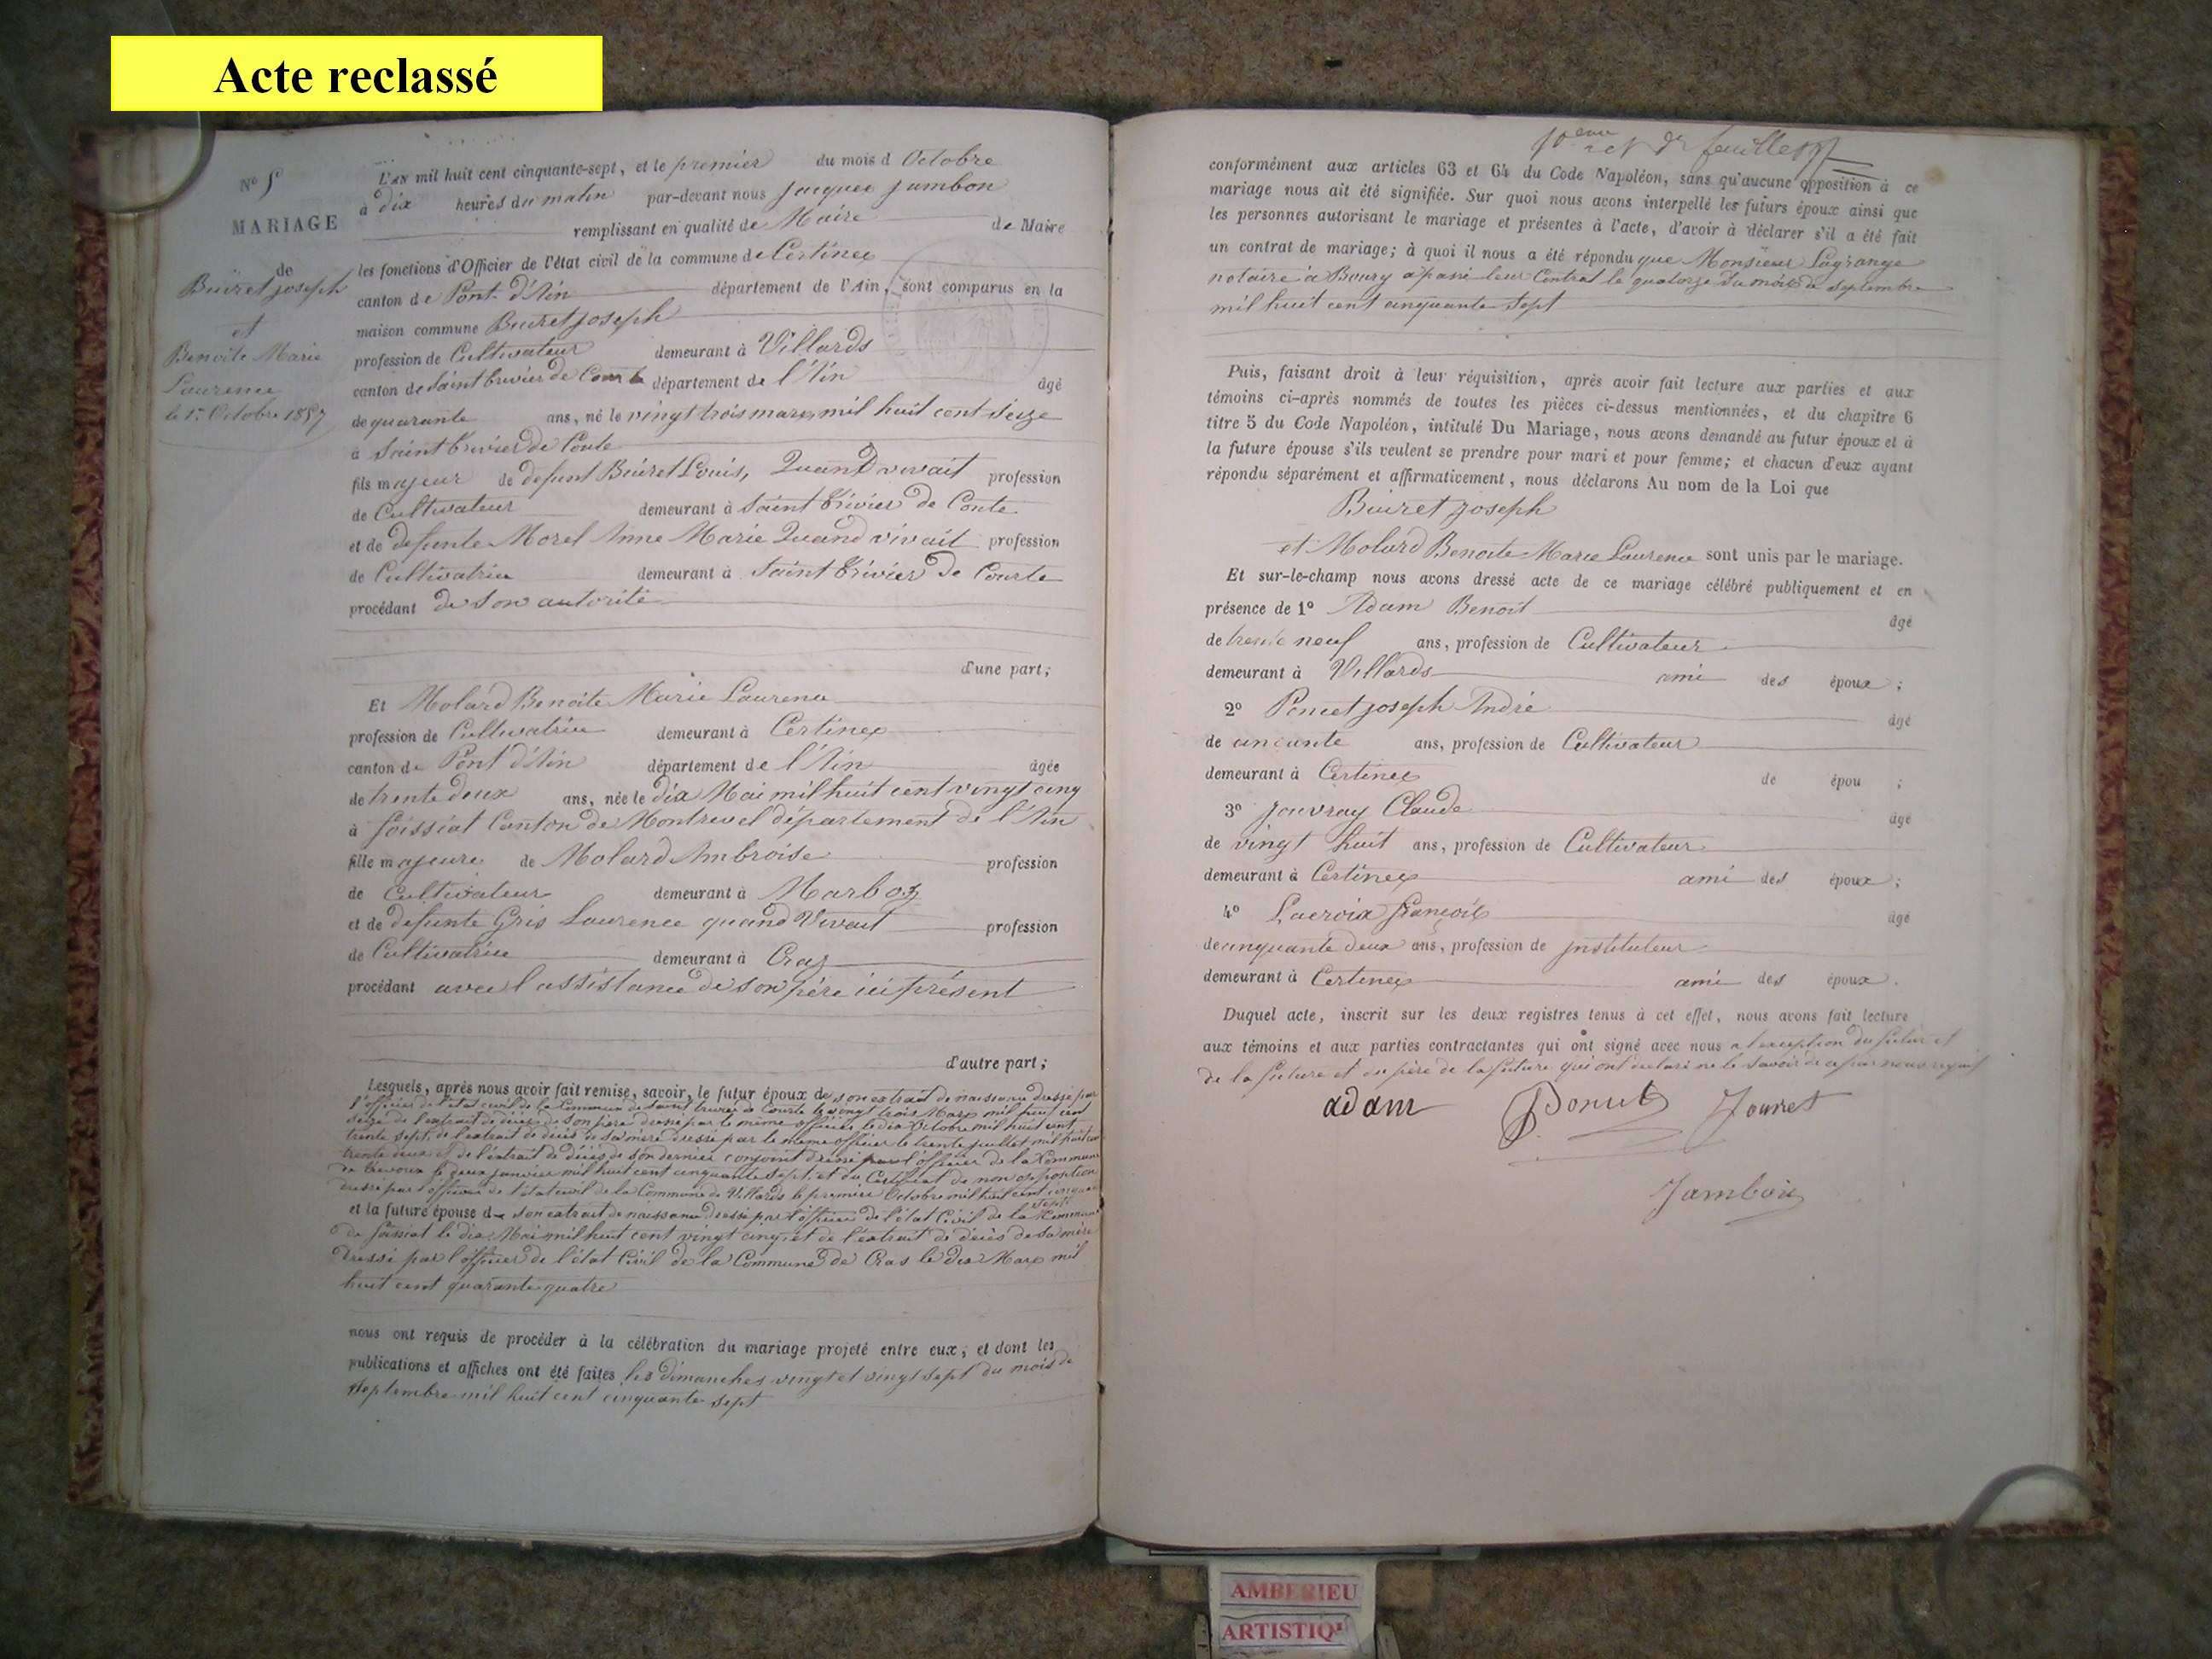 Acte reclassé
N° 5
MARIAGE
de
Buiret joseph
et
Benoite Marie
Laurence
le 1er Octobre 1857
L'an mil huit cent cinquante-sept, et le premier du mois d Octobre
à dix heures du matin par-devant nous Jacques Jambon
remplissant en qualité de Maire de Maire
les fonctions d'Officier de l'état civil de la commune de Certines
canton de Pont-d'Ain département de l'Ain, sont comparus en la
maison commune Buiret joseph
profession de Cultivateur demeurant à Villards
canton de Saint trivier de Courte département de l'Ain âgé
de quarante ans, né le vingt trois mars mil huit cent seize
à Saint trivier de Conte
fils majeur de defunt Buiret Louis, Quand vivait profession
de Cultivateur demeurant à Saint trivier de Conte
et de defunte Morel Anne Marie Quand vivait profession
de Cultivatrice demeurant à Saint trivier de Courte
procédant de son autorité
d'une part;
Et Molard Benoite Marie Laurence
profession de Cultivatrice demeurant à Certines
canton de Pont d'Ain département de l'Ain âgée
de trente deux ans, née le dix Mai mil huit cent vingt cinq
à foissiat Canton de Montrevel département de l'Ain
fille majeure de Molard Ambroise profession
de Cultivateur demeurant à Marboz
et de defunte Gris Laurence quand Vivait profession
de Cultivatrice demeurant à Cras
procédant avec l'assistance de son père ici présent
d'autre part;
Lesquels, après nous avoir fait remise, savoir, le futur époux de son extrait de naissance dressé par
l'officier de l'état civil de la Commune de Saint trivier de Courte le vingt trois Mars mil huit cent
seize de l'extrait de décès de son père dressé par le même officier le dix Octobre mil huit cent
trente sept, de l'extrait de décès de sa mère dressé par le même officier le trente juillet mil huit cent
trente deux et de l'extrait de décès de son dernier conjoint dressé par l'officier de la Commune
de trevoux le deux janvier mil huit cent cinquante sept, et du Certificat de non opposition
dressé par l'officier de l'état civil de la Commune de Villards le premier Octobre mil huit cent cinquante
sept
et la future épouse de son extrait de naissance dressé par l'officier de l'état Civil de la Commune
de foissiat le dix Mai mil huit cent vingt cinq, et de l'extrait de décès de sa mère
dressé par l'officier de l'état Civil de la Commune de Cras le dix Mars mil
huit cent quarante quatre
nous ont requis de procéder à la célébration du mariage projeté entre eux; et dont les
publications et affiches ont été faites les dimanches vingt et vingt sept du mois de
septembre mil huit cent cinquante sept
feuillet
conformément aux articles 63 et 64 du Code Napoléon, sans qu'aucune opposition à ce
mariage nous ait été signifiée. Sur quoi nous avons interpellé les futurs époux ainsi que
les personnes autorisant le mariage et présentes à l'acte, d'avoir à déclarer s'il a été fait
un contrat de mariage; à quoi il nous a été répondu que Monsieur Lagrange
notaire à Bourg a passé leur Contrat le quatorze du mois de septembre
mil huit cent cinquante sept
Puis, faisant droit à leur réquisition, après avoir fait lecture aux parties et aux
témoins ci-après nommés de toutes les pièces ci-dessus mentionnées, et du chapitre 6
titre 5 du Code Napoléon, intitulé Du Mariage, nous avons demandé au futur époux et à
la future épouse s'ils veulent se prendre pour mari et pour femme; et chacun d'eux ayant
répondu séparément et affirmativement, nous déclarons Au nom de la Loi que
Buiret joseph
et Molard Benoite Marie Laurence sont unis par le mariage.
Et sur-le-champ nous avons dressé acte de ce mariage célébré publiquement et en
présence de 1° Adam Benoit âgé
de trente neuf ans, profession de Cultivateur
demeurant à Villards ami des époux;
2° Poncet joseph André âgé
de ans, profession de Cultivateur
demeurant à Certines de épou ;
3° Jouvray Claude âgé
de vingt huit ans, profession de Cultivateur
demeurant à Certines ami des époux;
4° Lacroix françois âgé
de cinquante deux ans, profession de instituteur
demeurant à Certines ami des époux.
Duquel acte, inscrit sur les deux registres tenus à cet effet, nous avons fait lecture
aux témoins et aux parties contractantes qui ont signé avec nous a l'exception du futur et
de la future et du père de la future qui ont déclaré ne le savoir de ce par nous requis
adam Poncet Jouvret
Jambon
AMBERIEU
ARTISTIQ